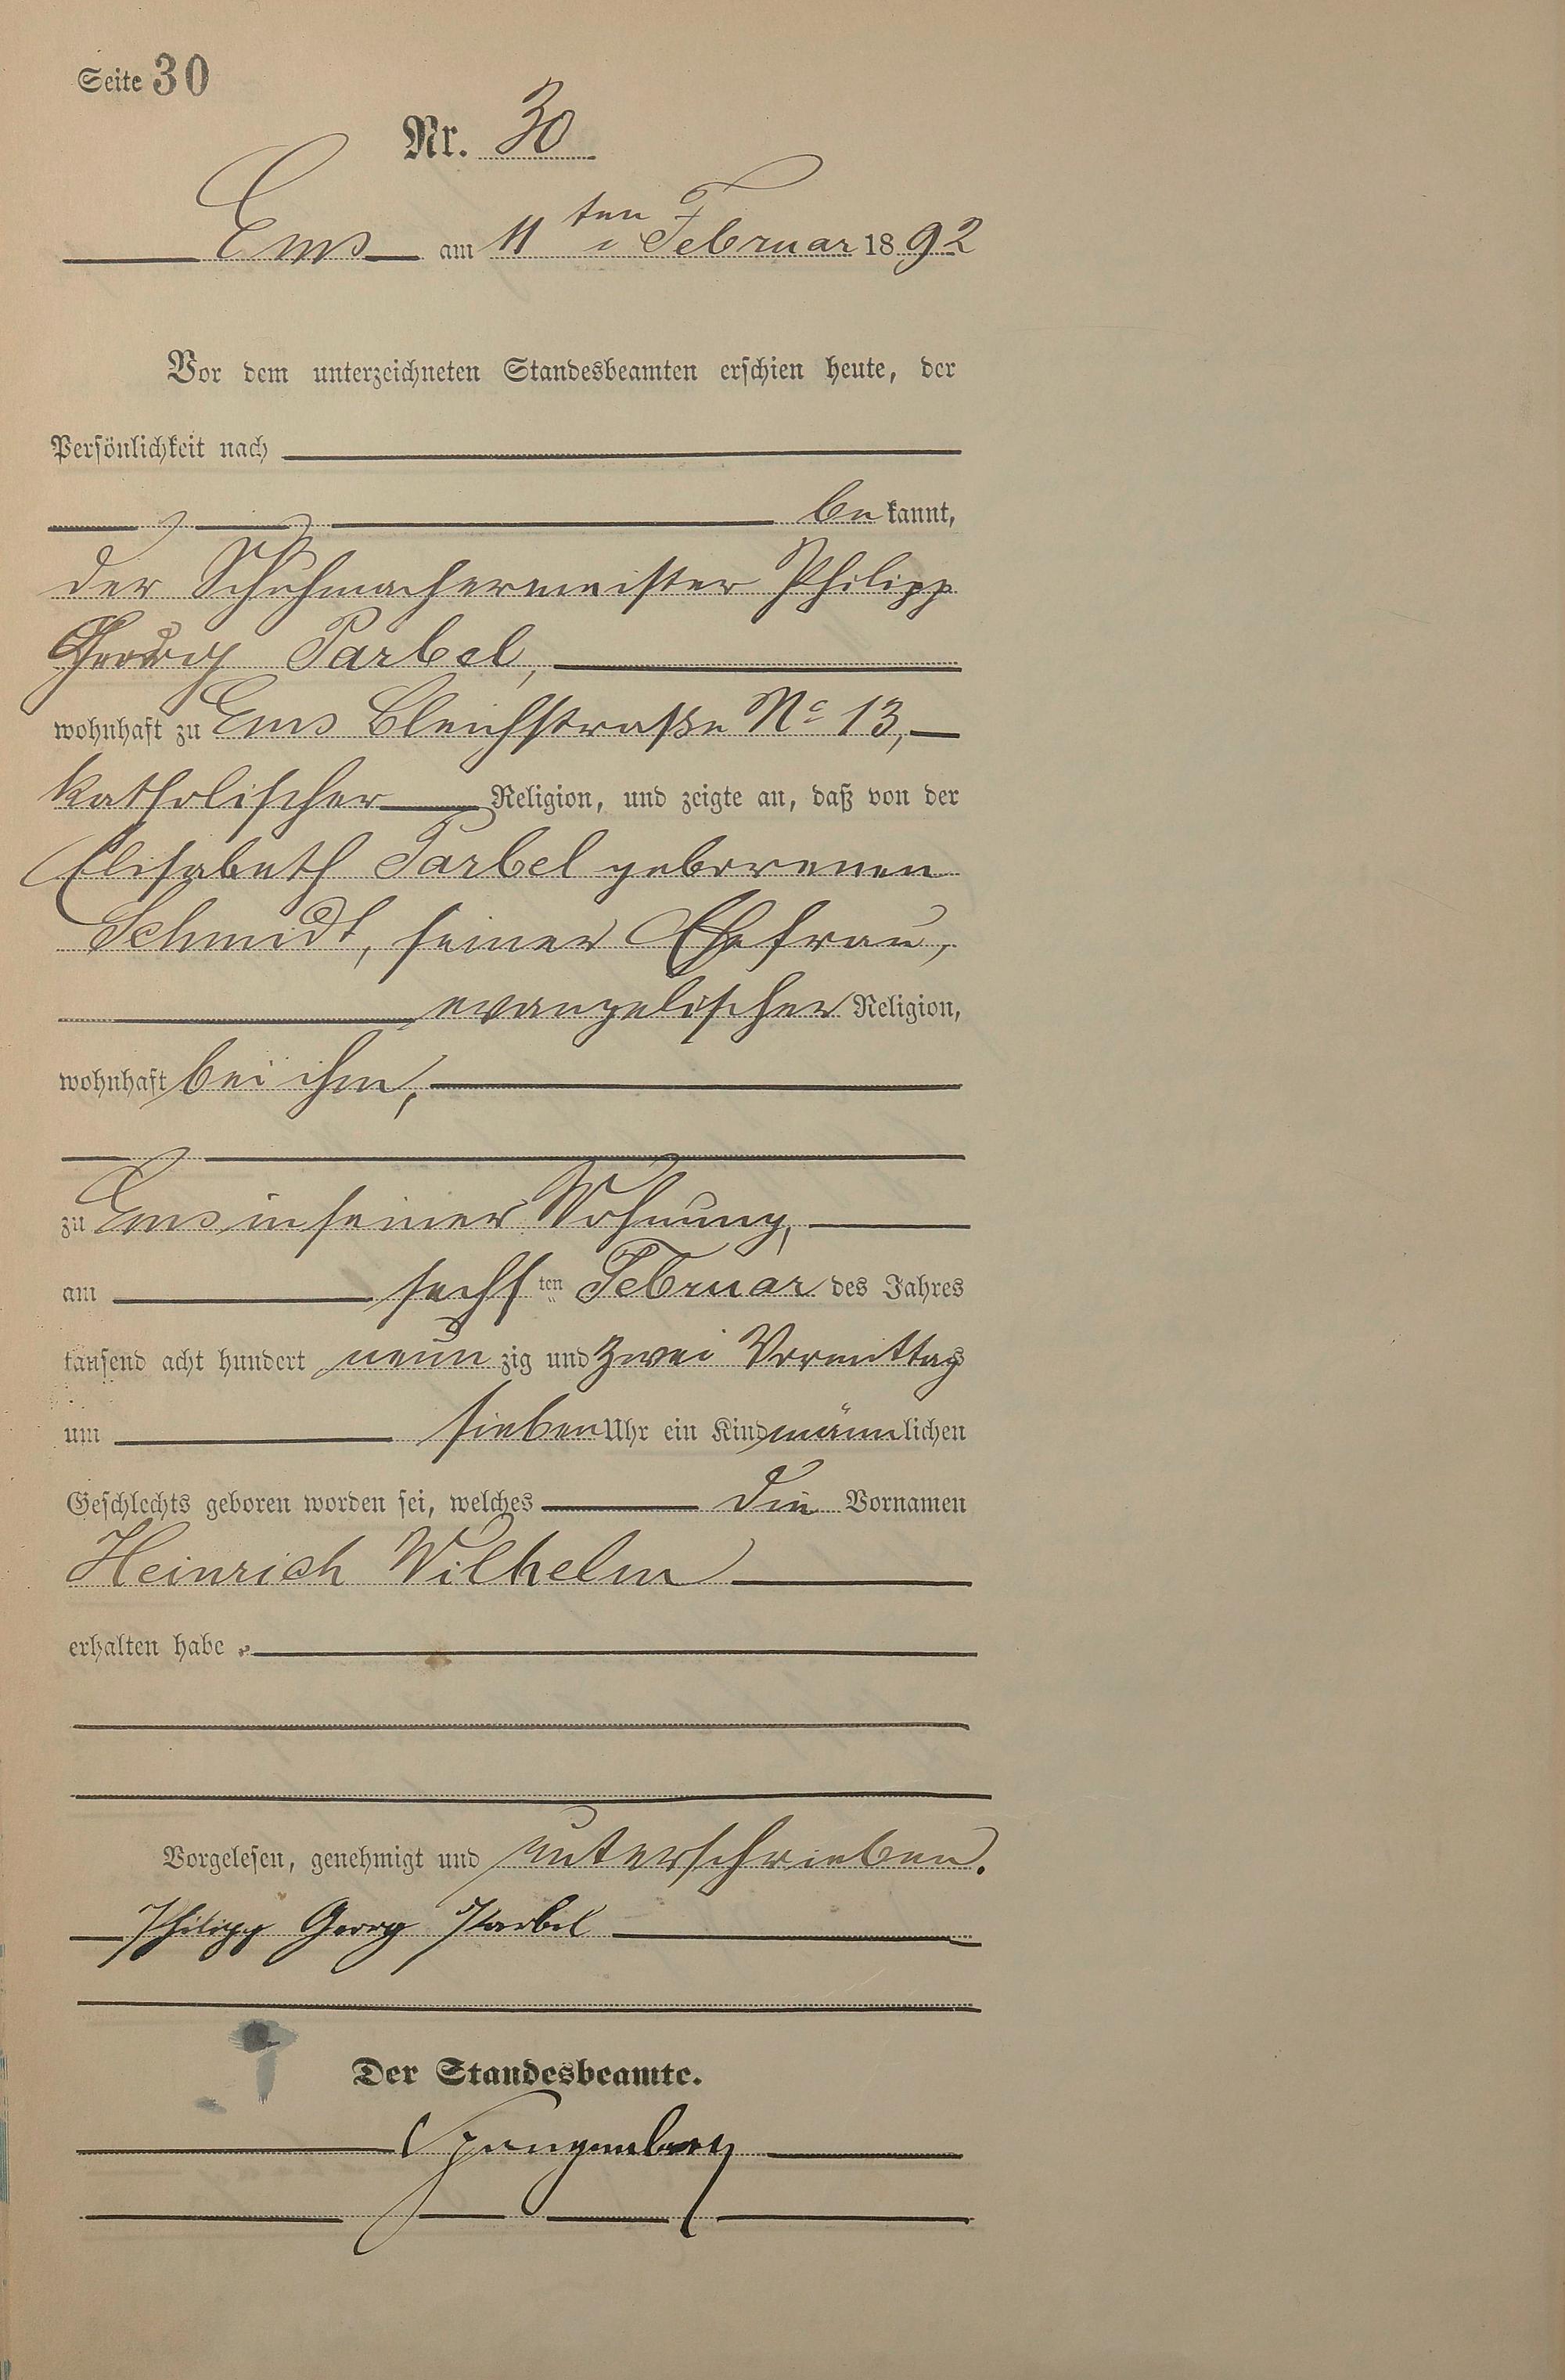 Seite 30
Nr. 30
Ems am 11ten Februar 1892
Vor dem unterzeichneten Standesbeamten erschien heute, der
Persönlichkeit nach
bekannt,
der Schuhmachermeister Philipp
Georg Parbel,
wohnhaft zu Ems Bleichstraße No 13,
katholischer Religion, und zeigte an, daß von der
Elisabeth Parbel geborenen
Schmidt, seiner Ehefrau,
evangelischer Religion,
wohnhaft bei ihm,
zu Ems in seiner Wohnung,
am sechsten Februar des Jahres
tausend acht hundert neunzig und zwei Vormittags
um sieben Uhr ein Kind männlichen
Geschlechts geboren worden sei, welches die Vornamen
Heinrich Wilhelm
erhalten habe.
Vorgelesen, genehmigt und unterschrieben.
Philipp Georg Parbel
Der Standesbeamte.
Spangenberg